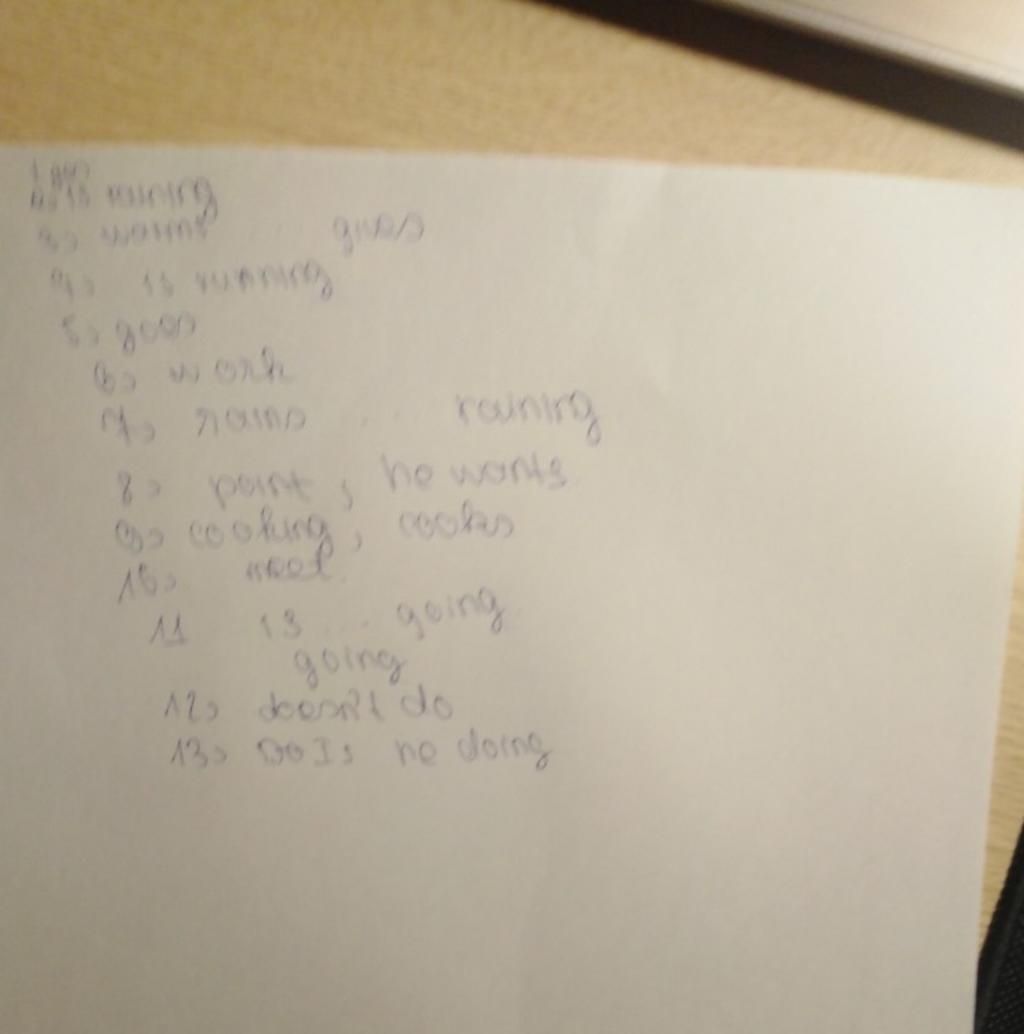 2, is raining
3, warms ... gives
4, is running
5, goes
6, work
7, rains ... raining
8, paint, he wants
9, cooking, cooks
10, meet
11 is ... going
going
12, doesn't do
13, Do Is he doing